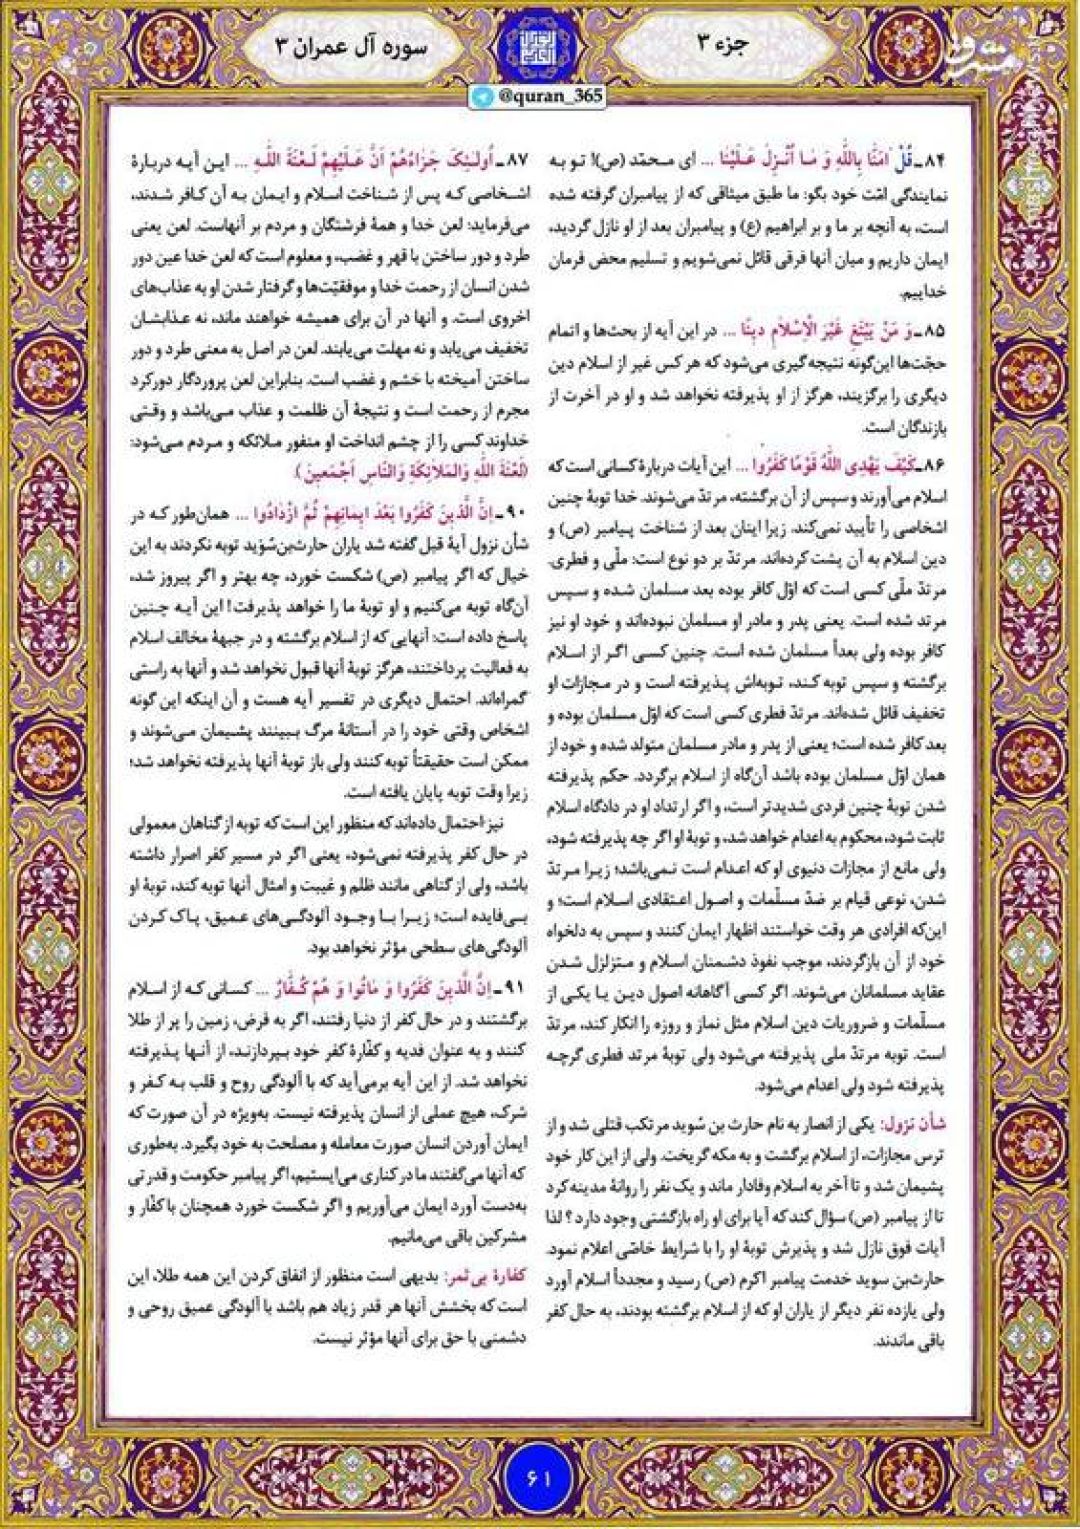 جزء ۳
سوره آل عمران ۳
@quran_365
۸۴ـ قُلْ ءَامَنَّا بِاللَّهِ وَ مَا أُنْزِلَ عَلَيْنَا ... ای محمّد (ص)! تو به
نمایندگی امّت خود بگو: ما طبق میثاقی که از پیامبران گرفته شده
است، به آنچه بر ما و بر ابراهیم (ع) و پیامبران بعد از او نازل گردید،
ایمان داریم و میان آنها فرقی قائل نمی‌شویم و تسلیم محض فرمان
خداییم.
۸۵ـ وَ مَنْ يَبْتَغِ غَيْرَ الْإِسْلَامِ دِينًا ... در این آیه از بحث‌ها و اتمام
حجّت‌ها این‌گونه نتیجه‌گیری می‌شود که هر کس غیر از اسلام دین
دیگری را برگزیند، هرگز از او پذیرفته نخواهد شد و او در آخرت از
بازندگان است.
۸۶ـ كَيْفَ يَهْدِى اللَّهُ قَوْمًا كَفَرُوا ... این آیات دربارهٔ کسانی است که
اسلام می‌آورند و سپس از آن برگشته، مرتدّ می‌شوند. خدا توبهٔ چنین
اشخاصی را تأیید نمی‌کند. زیرا اینان بعد از شناخت پیامبر (ص) و
دین اسلام به آن پشت کرده‌اند. مرتدّ بر دو نوع است: ملّی و فطری.
مرتدّ ملّی کسی است که اوّل کافر بوده بعد مسلمان شده و سپس
مرتد شده است. یعنی پدر و مادر او مسلمان نبوده‌اند و خود او نیز
کافر بوده ولی بعداً مسلمان شده است. چنین کسی اگر از اسلام
برگشته و سپس توبه کند، توبه‌اش پذیرفته است و در مجازات او
تخفیف قائل شده‌اند. مرتدّ فطری کسی است که اوّل مسلمان بوده و
بعد کافر شده است؛ یعنی از پدر و مادر مسلمان متولد شده و خود از
همان اوّل مسلمان بوده باشد آن‌گاه از اسلام برگردد. حکم پذیرفته
شدن توبهٔ چنین فردی شدیدتر است، و اگر ارتداد او در دادگاه اسلام
ثابت شود، محکوم به اعدام خواهد شد، و توبهٔ او اگر چه پذیرفته شود،
ولی مانع از مجازات دنیوی او که اعدام است نمی‌باشد؛ زیرا مرتدّ
شدن، نوعی قیام بر ضدّ مسلّمات و اصول اعتقادی اسلام است؛ و
این‌که افرادی هر وقت خواستند اظهار ایمان کنند و سپس به دلخواه
خود از آن بازگردند، موجب نفوذ دشمنان اسلام و متزلزل شدن
عقاید مسلمانان می‌شوند. اگر کسی آگاهانه اصول دین یا یکی از
مسلّمات و ضروریات دین اسلام مثل نماز و روزه را انکار کند، مرتدّ
است. توبه مرتدّ ملی پذیرفته می‌شود ولی توبهٔ مرتد فطری گرچه
پذیرفته شود ولی اعدام می‌شود.
شأن نزول: یکی از انصار به نام حارث بن سُوید مرتکب قتلی شد و از
ترس مجازات، از اسلام برگشت و به مکه گریخت. ولی از این کار خود
پشیمان شد و تا آخر به اسلام وفادار ماند و یک نفر را روانهٔ مدینه کرد
تا از پیامبر (ص) سؤال کند که آیا برای او راه بازگشتی وجود دارد؟ لذا
آیات فوق نازل شد و پذیرش توبهٔ او را با شرایط خاصّی اعلام نمود.
حارث‌بن سوید خدمت پیامبر اکرم (ص) رسید و مجدداً اسلام آورد
ولی یازده نفر دیگر از یاران او که از اسلام برگشته بودند، به حال کفر
باقی ماندند.
۸۷ـ أُولَئِكَ جَزَاؤُهُمْ أَنَّ عَلَيْهِمْ لَعْنَةَ اللَّهِ ... این آیه دربارهٔ
اشخاصی که پس از شناخت اسلام و ایمان به آن کافر شدند،
می‌فرماید: لعن خدا و همهٔ فرشتگان و مردم بر آنهاست. لعن یعنی
طرد و دور ساختن با قهر و غضب، و معلوم است که لعن خدا عین دور
شدن انسان از رحمت خدا و موفقیّت‌ها و گرفتار شدن او به عذاب‌های
اخروی است. و آنها در آن برای همیشه خواهند ماند، نه عذابشان
تخفیف می‌یابد و نه مهلت می‌یابند. لعن در اصل به معنی طرد و دور
ساختن آمیخته با خشم و غضب است. بنابراین لعن پروردگار دورکرد
مجرم از رحمت است و نتیجهٔ آن ظلمت و عذاب می‌باشد و وقتی
خداوند کسی را از چشم انداخت او منفور ملائکه و مردم می‌شود:
(لَعْنَةَ اللَّهِ وَالْمَلَائِكَةِ وَالنَّاسِ أَجْمَعِينَ).
۹۰ـ إِنَّ الَّذِينَ كَفَرُوا بَعْدَ إِيمَانِهِمْ ثُمَّ ازْدَادُوا ... همان‌طور که در
شأن نزول آیهٔ قبل گفته شد یاران حارث‌بن‌سُوَید توبه نکردند به این
خیال که اگر پیامبر (ص) شکست خورد، چه بهتر و اگر پیروز شد،
آن‌گاه توبه می‌کنیم و او توبهٔ ما را خواهد پذیرفت! این آیه چنین
پاسخ داده است: آنهایی که از اسلام برگشته و در جبههٔ مخالف اسلام
به فعالیت پرداختند، هرگز توبهٔ آنها قبول نخواهد شد و آنها به راستی
گمراه‌اند. احتمال دیگری در تفسیر آیه هست و آن اینکه این گونه
اشخاص وقتی خود را در آستانهٔ مرگ ببینند پشیمان می‌شوند و
ممکن است حقیقتاً توبه کنند ولی باز توبهٔ آنها پذیرفته نخواهد شد؛
زیرا وقت توبه پایان یافته است.
نیز احتمال داده‌اند که منظور این است که توبه از گناهان معمولی
در حال کفر پذیرفته نمی‌شود، یعنی اگر در مسیر کفر اصرار داشته
باشد، ولی از گناهی مانند ظلم و غیبت و امثال آنها توبه کند، توبهٔ او
بی‌فایده است؛ زیرا با وجود آلودگی‌های عمیق، پاک کردن
آلودگی‌های سطحی مؤثر نخواهد بود.
۹۱ـ إِنَّ الَّذِينَ كَفَرُوا وَ مَاتُوا وَ هُمْ كُفَّارٌ ... کسانی که از اسلام
برگشتند و در حال کفر از دنیا رفتند، اگر به فرض، زمین را پر از طلا
کنند و به عنوان فدیه و کفّارهٔ کفر خود بپردازند، از آنها پذیرفته
نخواهد شد. از این آیه برمی‌آید که با آلودگی روح و قلب به کفر و
شرک، هیچ عملی از انسان پذیرفته نیست. به‌ویژه در آن صورت که
ایمان آوردن انسان صورت معامله و مصلحت به خود بگیرد. به‌طوری
که آنها می‌گفتند ما در کناری می‌ایستیم، اگر پیامبر حکومت و قدرتی
به‌دست آورد ایمان می‌آوریم و اگر شکست خورد همچنان با کفّار و
مشرکین باقی می‌مانیم.
کفارهٔ بی‌ثمر: بدیهی است منظور از انفاق کردن این همه طلا، این
است که بخشش آنها هر قدر زیاد هم باشد با آلودگی عمیق روحی و
دشمنی با حق برای آنها مؤثر نیست.
۶۱